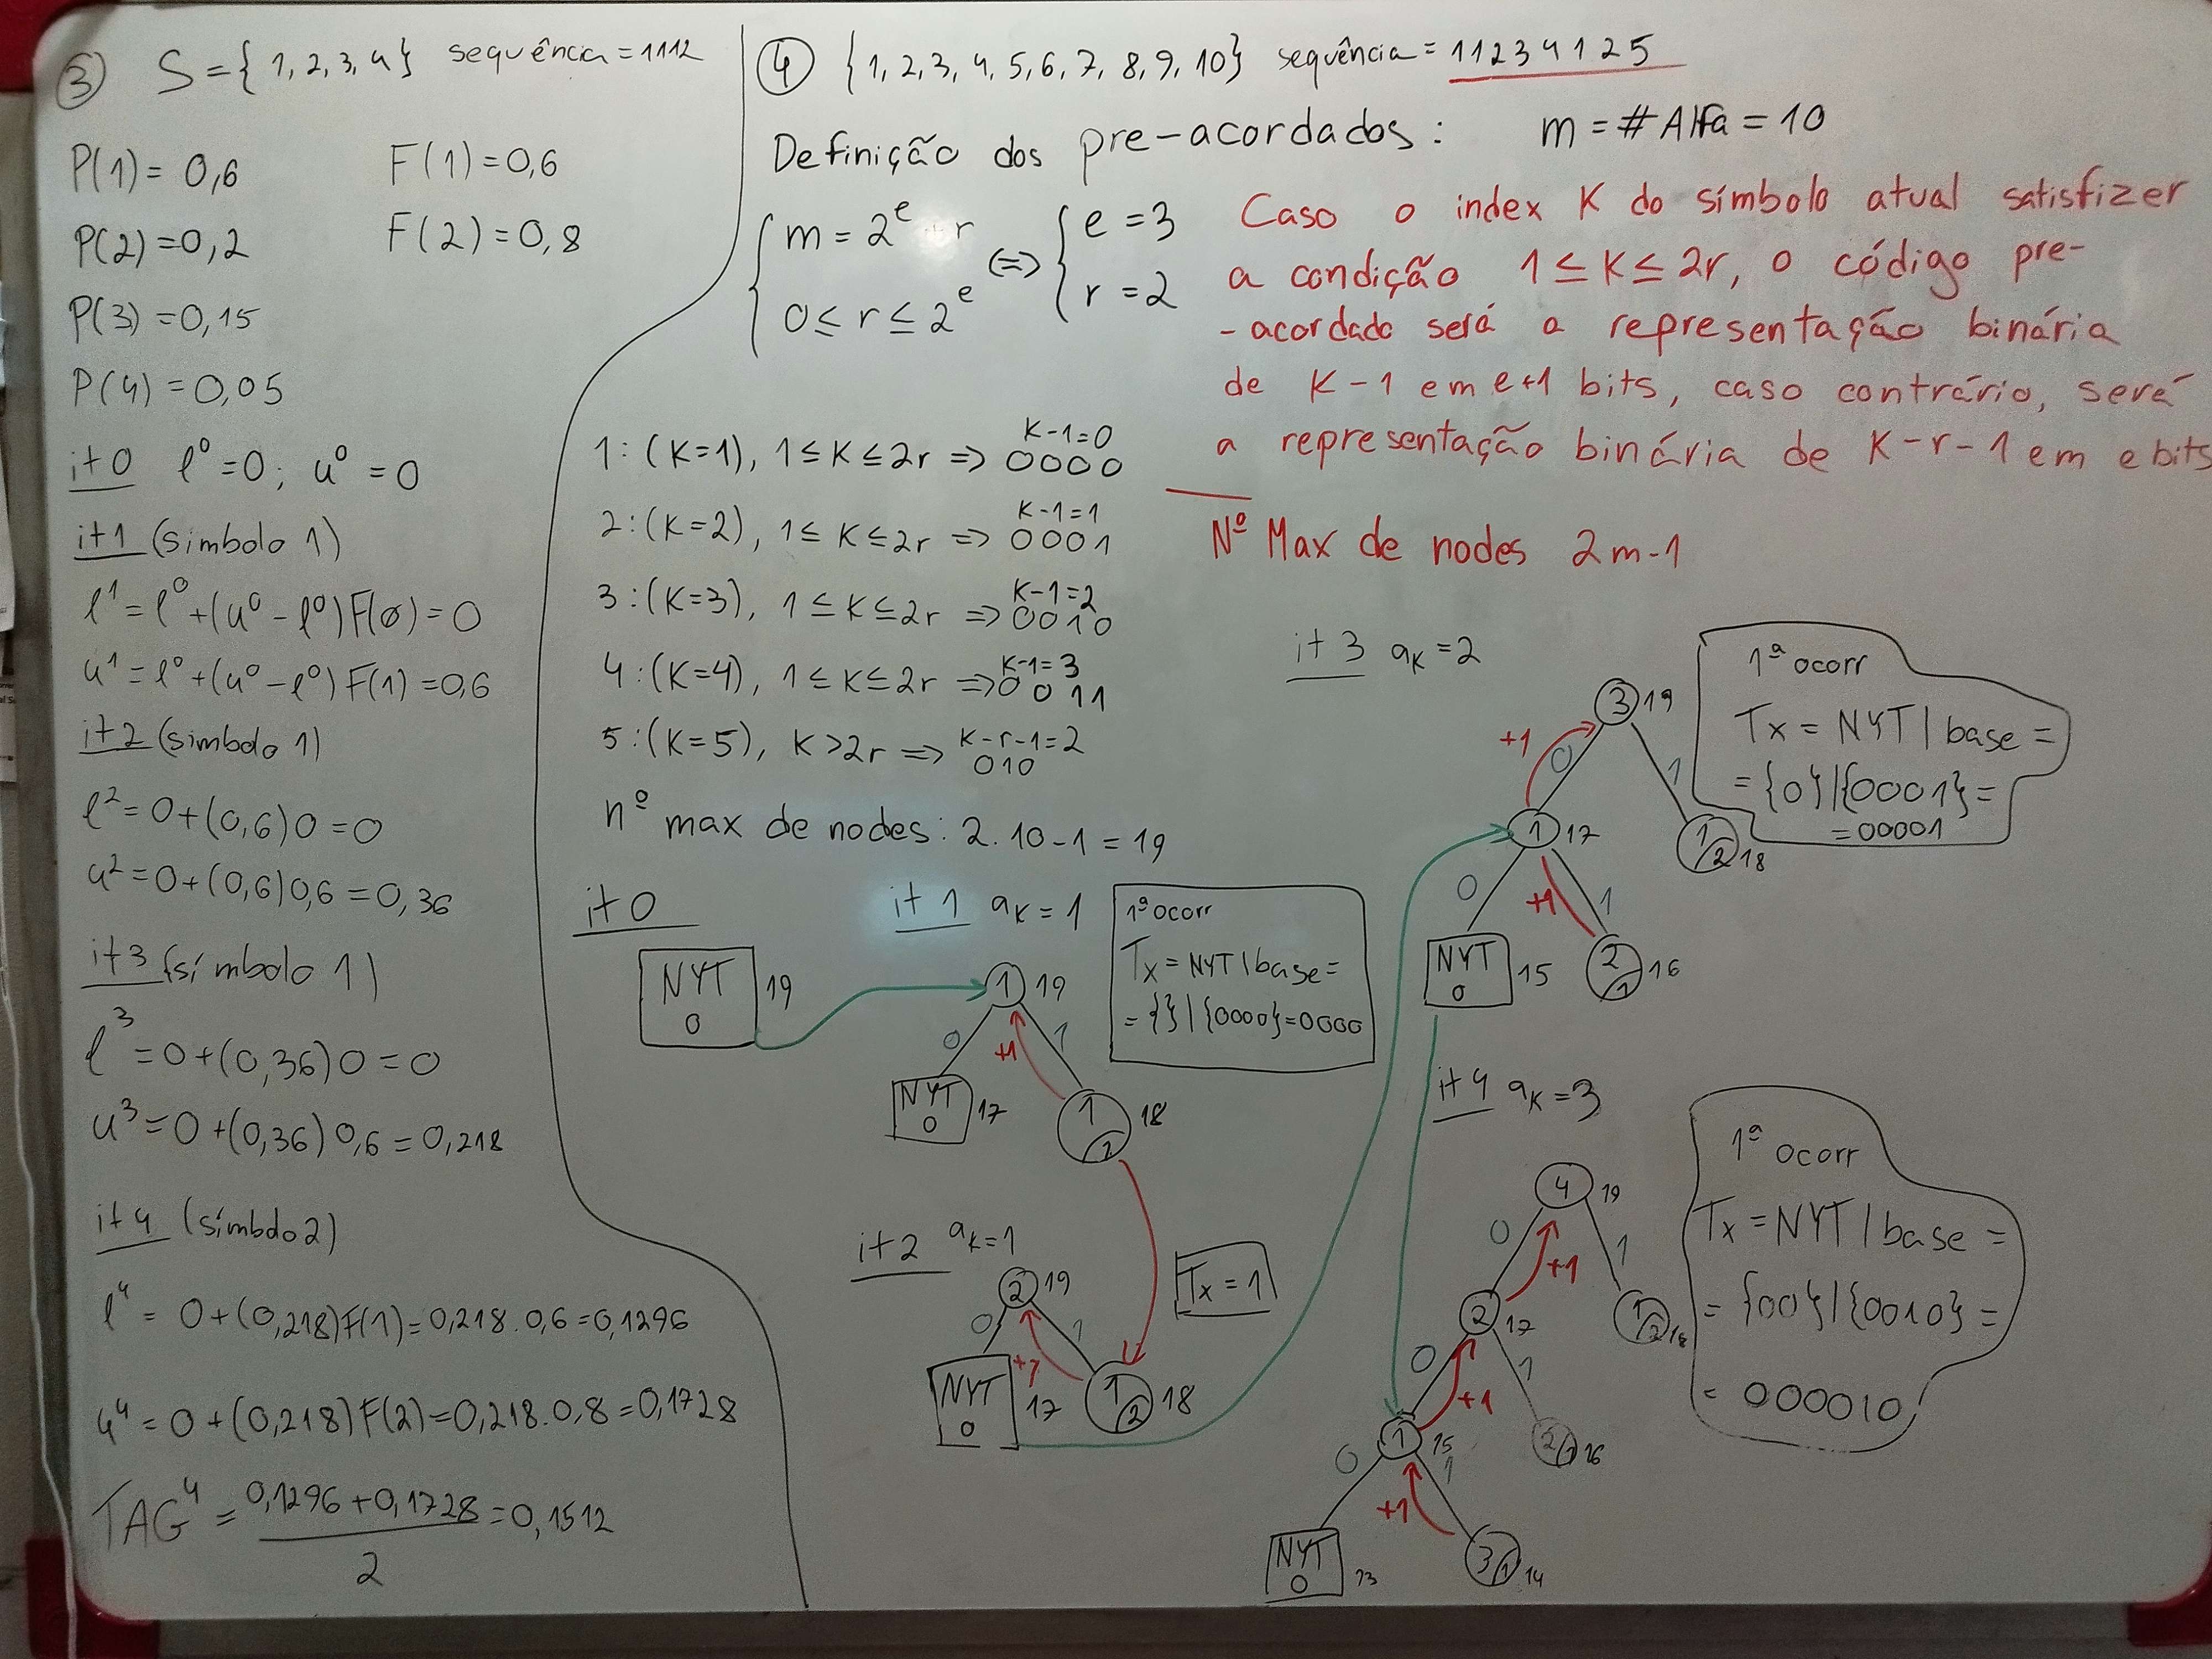 ③ S = {1, 2, 3, 4} sequência = 1112
P(1) = 0,6 F(1) = 0,6
P(2) = 0,2 F(2) = 0,8
P(3) = 0,15
P(4) = 0,05
it0 l⁰ = 0; u⁰ = 0
it1 (símbolo 1)
l¹ = l⁰ + (u⁰ - l⁰) F(0) = 0
u¹ = l⁰ + (u⁰ - l⁰) F(1) = 0,6
it2 (símbolo 1)
l² = 0 + (0,6) 0 = 0
u² = 0 + (0,6) 0,6 = 0,36
it3 (símbolo 1)
l³ = 0 + (0,36) 0 = 0
u³ = 0 + (0,36) 0,6 = 0,218
it4 (símbolo 2)
l⁴ = 0 + (0,218) F(1) = 0,218 . 0,6 = 0,1296
u⁴ = 0 + (0,218) F(2) = 0,218 . 0,8 = 0,1728
TAG⁴ = 0,1296 + 0,1728 = 0,1512
2
④ {1, 2, 3, 4, 5, 6, 7, 8, 9, 10} sequência = 11234125
Definição dos pre-acordados: m = # Alfa = 10
m = 2^e + r <=> e = 3
0 ≤ r ≤ 2^e r = 2
Caso o index K do símbolo atual satisfizer
a condição 1 ≤ K ≤ 2r, o código pre-
-acordado será a representação binária
de K-1 em e+1 bits, caso contrário, será
a representação binária de K-r-1 em e bits
Nº Max de nodes 2m-1
K-1=0
1: (K=1), 1 ≤ K ≤ 2r => 0000
K-1=1
2: (K=2), 1 ≤ K ≤ 2r => 0001
K-1=2
3: (K=3), 1 ≤ K ≤ 2r => 0010
K-1=3
4: (K=4), 1 ≤ K ≤ 2r => 0011
K-r-1=2
5: (K=5), K > 2r => 010
nº max de nodes: 2.10-1 = 19
it0
NYT 19
0
it1 aK = 1
1 19
0 +1 1
NYT 17
0
1 18
1
1ª ocorr
Tx = NYT | base =
= {} | {0000} = 0000
it2 aK=1
2 19
0 +1 1
NYT 17
0
1 18
2
Tx = 1
it3 aK = 2
3 19
+1 0 1
1 17
1 18
2
0 +1 1
NYT 15
0
2 16
1
1ª ocorr
Tx = NYT | base =
= {0} | {0001} =
= 00001
it4 aK = 3
4 19
0 +1 1
2 17
1 18
2
0 +1 1
1 15
2 16
1
0 +1 1
NYT 13
0
3 14
1
1ª ocorr
Tx = NYT | base =
= {00} | {0010} =
= 000010